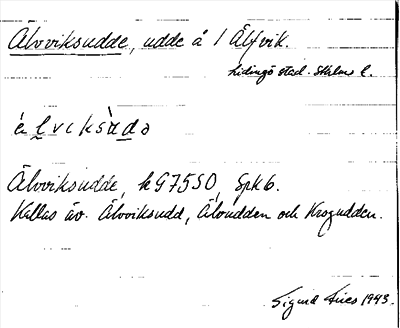 Älvviksudde, udde å 1 Älfvik.
Lidingö stad. Sthlms l.
Älvviksudde, k G7550, Spkb.
Kallas äv. Älvviksudd, Älvudden och Krogudden.
Sigurd Fries 1943.